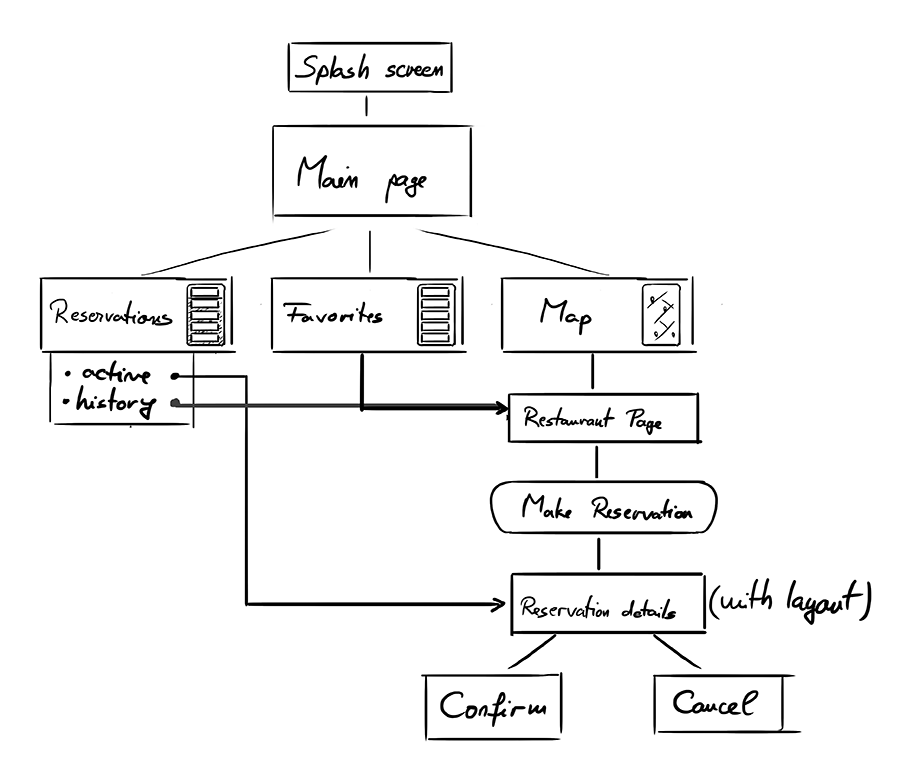 Splash screen
Main page
Reservations
Favorites
Map
• active
• history
Restaurant Page
Make Reservation
Reservation details
(with layout)
Confirm
Cancel